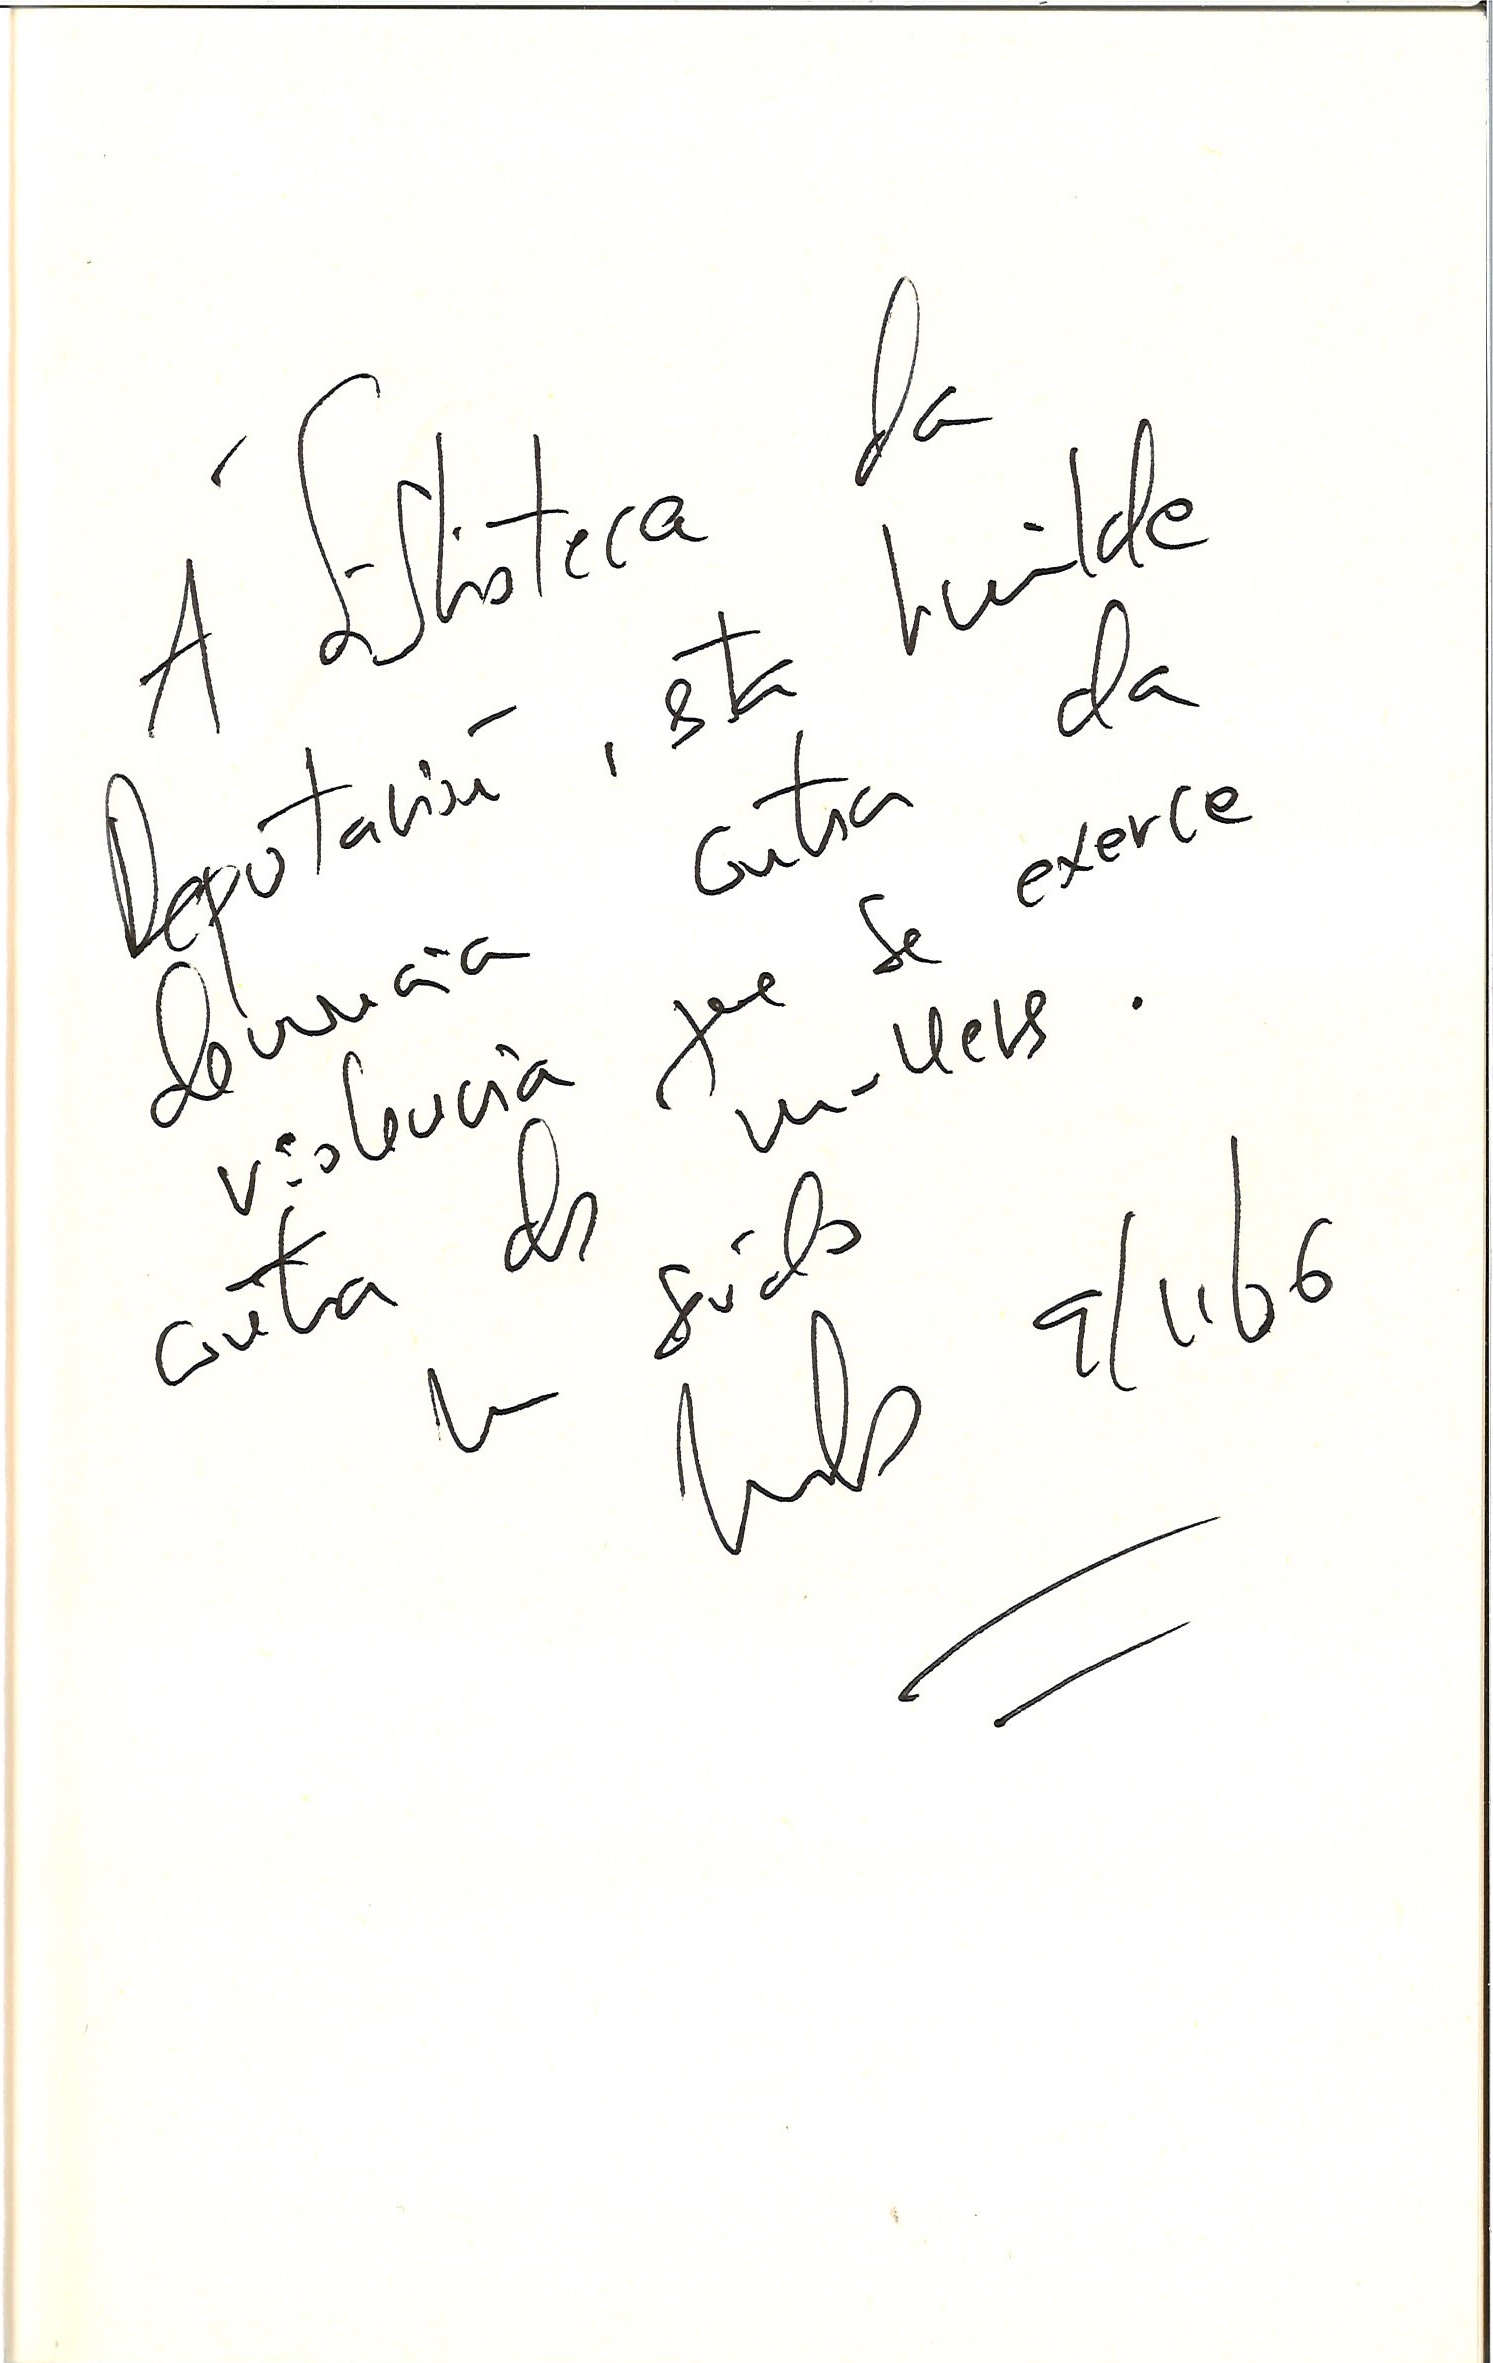 Á Biblioteca da
Deputación, esta humilde
denuncia contra da
violencia que se exerce
contra das mulleres.
Un saúdo
9/11/06